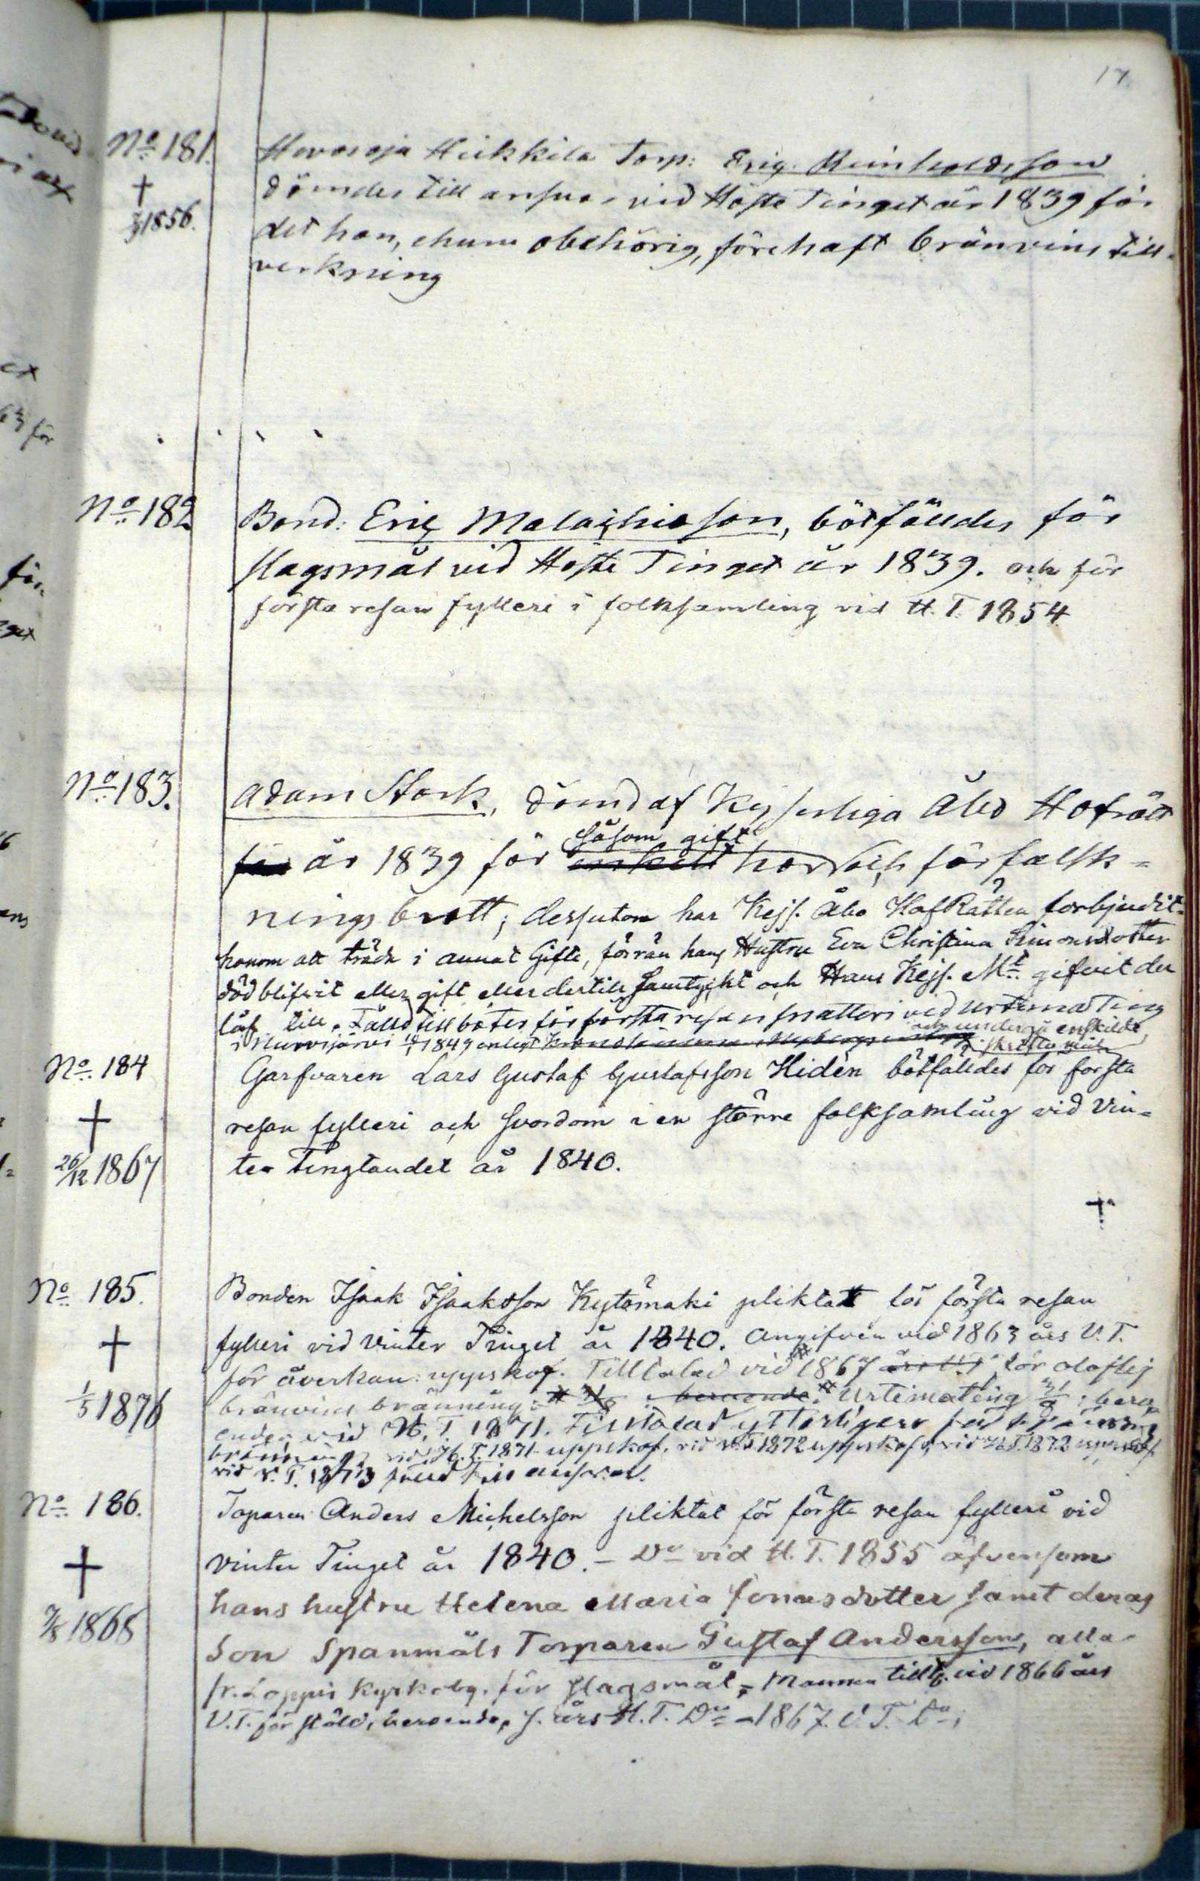 17
No 181. Hevosoja Heikkilä Torp: Eriq Reinholdsson
† dömdes till ansvar vid Höste Tinget år 1839 för
1856. det han, ehuru obehörig, förehaft bränvins till-
verkning
No 182 Bond: Eriq Malachiasson, bötfälldes för
slagsmål vid Höste Tinget år 1839. och för
första resan fylleri i folksamling vid H.T. 1854
No 183. Adam Stork, dömd af Kejserliga Åbo Hofrätt
år 1839 för såsom gift
enkelt hor och förfalsk-
nings brott; dessutom har Kejs. Åbo HofRätten förbjudit
honom att träda i annat Gifte, förrän hans Hustru Eva Christina Simonsdotter
död blifvit eller gift, eller dertill samtyckt och Hans Kejs. Mt gifvit der
lof till. Fälld till böter för första resan snatteri vid Urtima Ting
i Nurmijärvi 1849 enligt
och undergå enskildt
skriftermål
No 184 Garfvaren Lars Gustaf Gustafsson Hidén bötfälldes för första
† resan fylleri och svordom i en större folksamling vid Vin-
26/12 1867 ter Tingtandet år 1840.
†
No 185. Bonden Isaak Isaaksson Kytömäki pliktat för första resan
† fylleri vid Vinter Tinget år 1840. Angifven vid 1863 års V.T.
för åverkan: uppskof. Tilltalad vid 1867 för oloflig
1/5 1876 bränvins bränning: Urtimating ; bero-
ende; vid H.T. 1871. Tilltalad ytterligare för
bränning vid H.T. 1871 uppskof, vid V.T. 1872 uppskof, vid H.T. 1872 uppskof
vid V.T. 1873 från ansvar.
No 186. Toparen Anders Michelsson pliktat för första resan fylleri vid
† Vinter Tinget år 1840. – Do vid H.T. 1855 äfvensom
/8 1868 hans hustru Helena Maria Jonasdotter samt deras
Son Spanmåls Torparen Gustaf Andersson, alla
fr. Loppis Kyrkoby, för slagsmål; Mannen tillt. vid 1866 års
V.T. för stöld, beroende, s. års H.T. Do – 1867. V.T. Do;